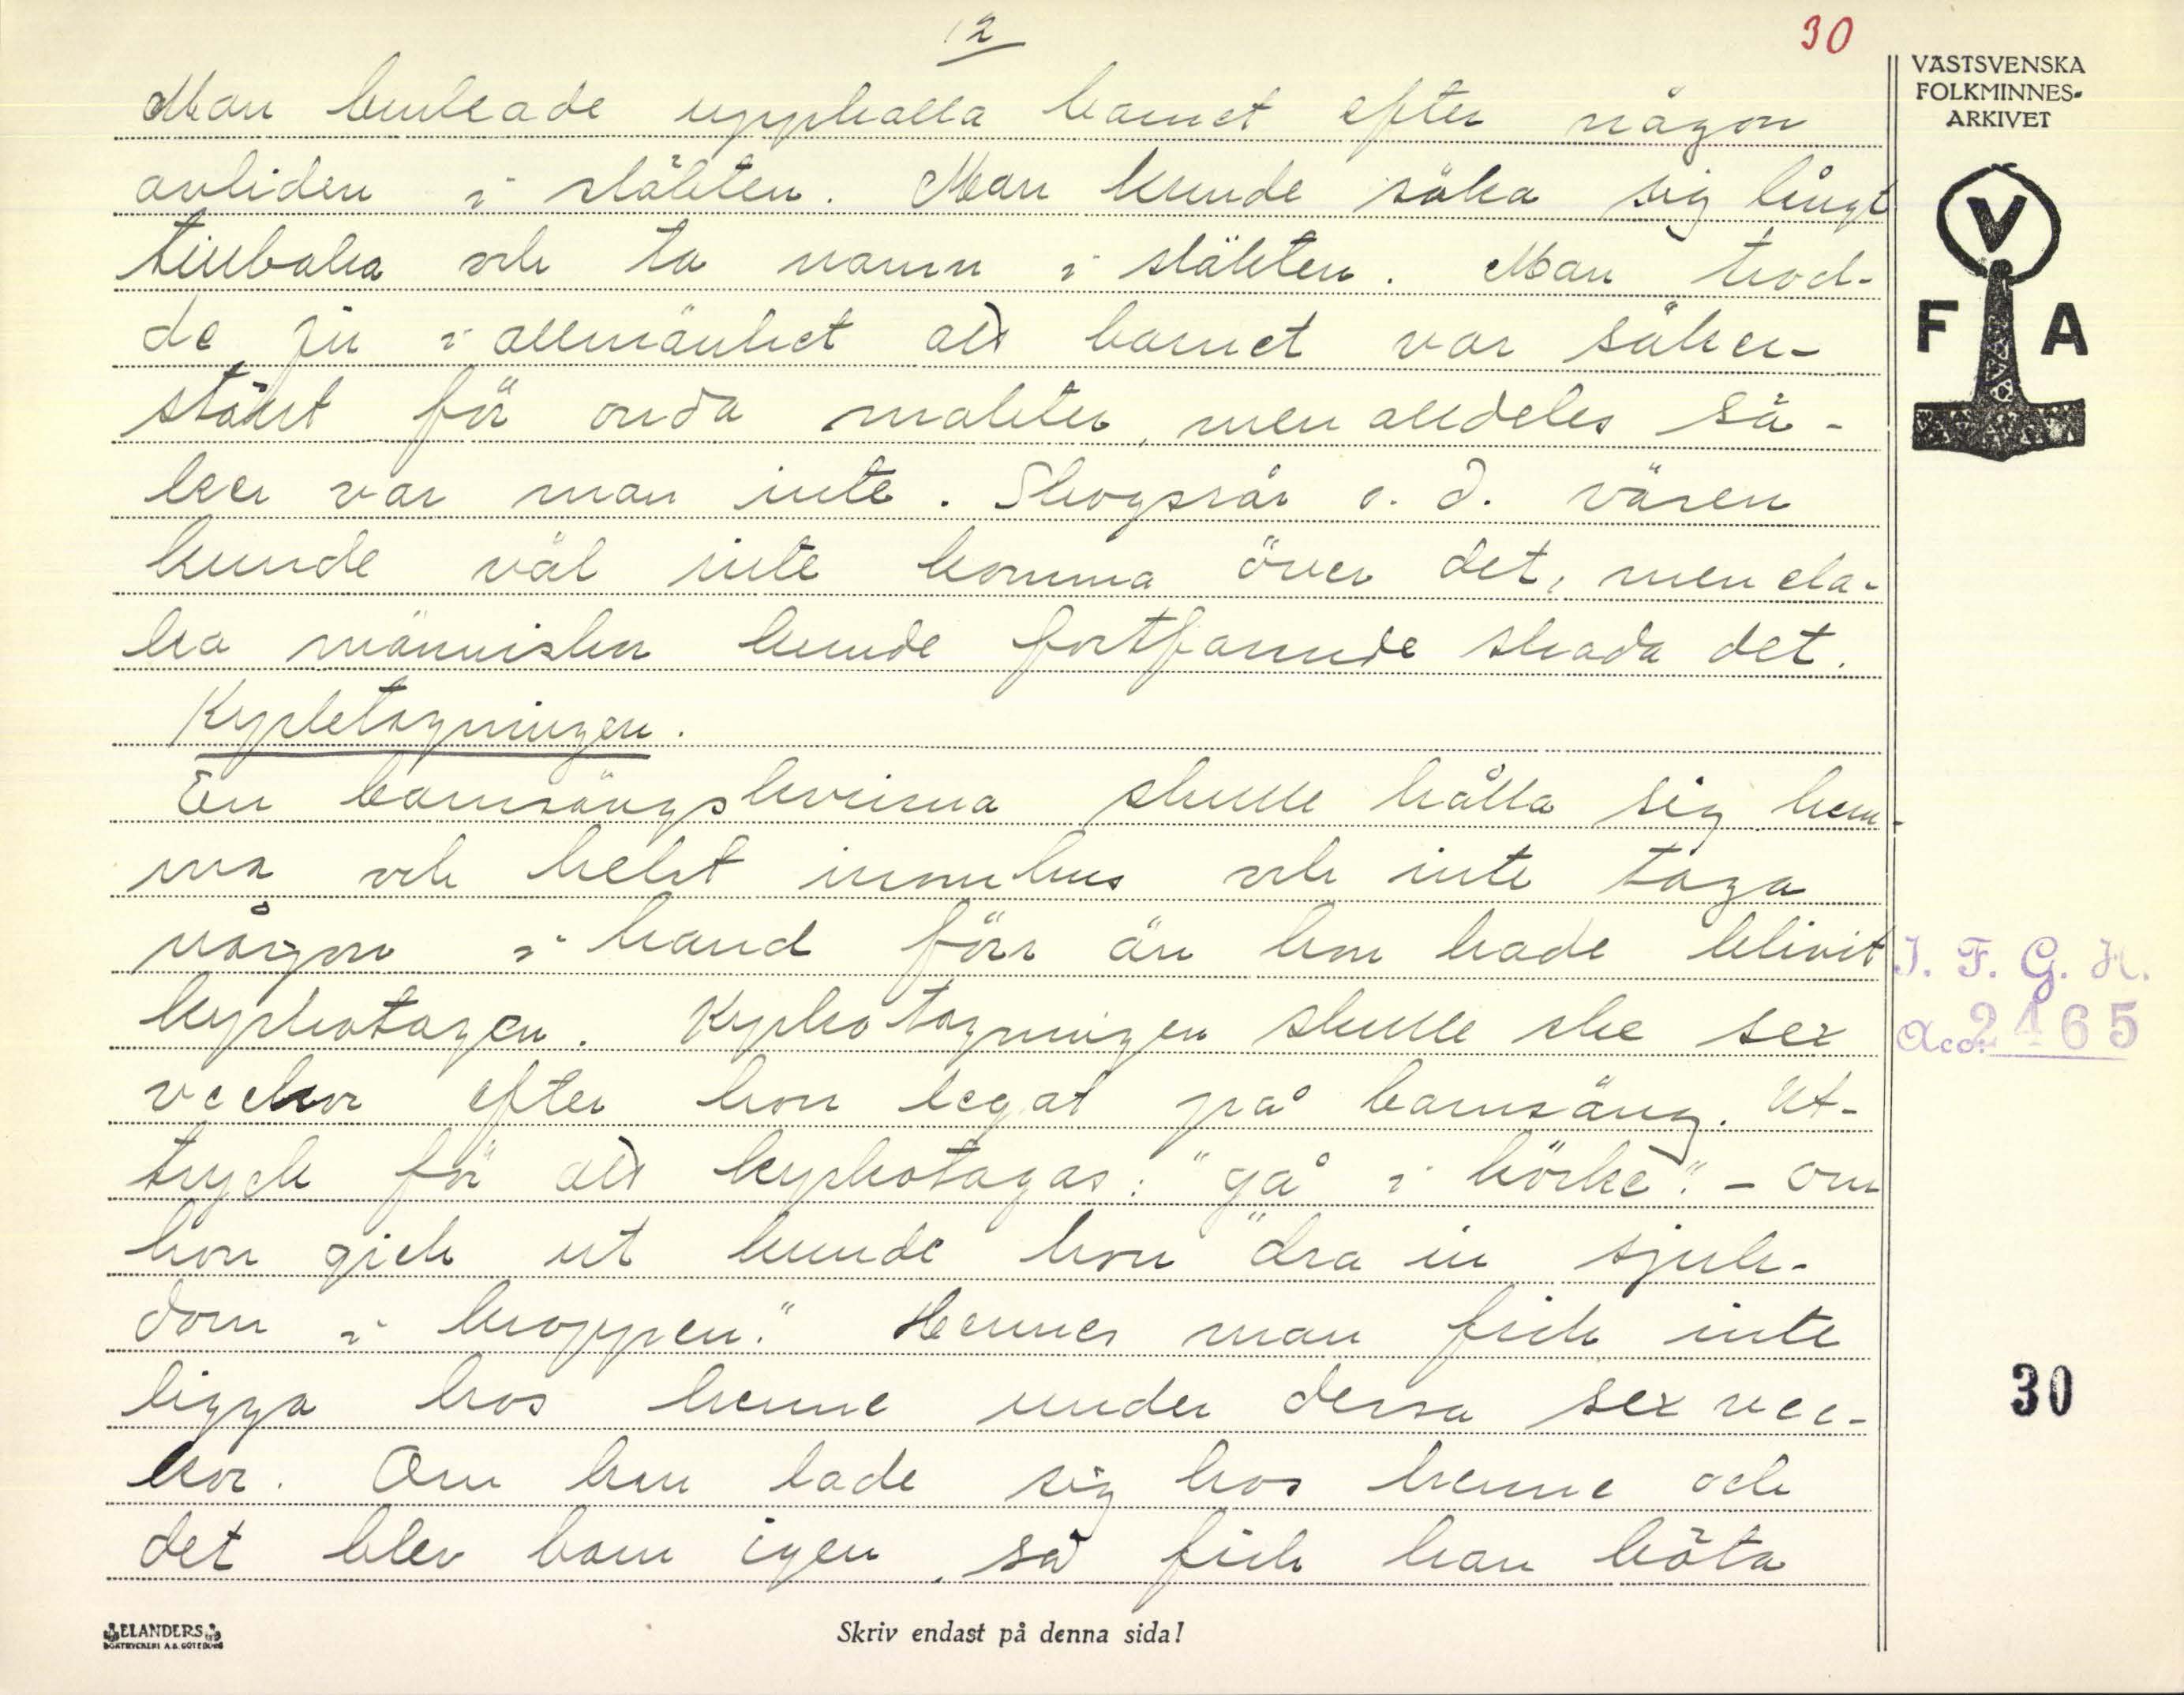 12
30
VÄSTSVENSKA
FOLKMINNES-
ARKIVET
V
F A
Man brukade uppkalla barnet efter någon
avliden i släkten. Man kunde söka sig långt
tillbaka och ta namn i släkten. Man trod-
de ju i allmänhet att barnet var säker-
ställt för onda makter, men alldeles sä-
ker var man inte. Skogsrår o. d. väsen
kunde väl inte komma över det, men ela-
ka människor kunde fortfarande skada det.
Kyrktagningen.
En barnsängskvinna skulle hålla sig hem-
ma och helst inomhus och inte taga
någon i hand förr än hon hade blivit
kyrkotagen. Kyrkotagningen skulle ske sex
veckor efter hon legat på barnsäng. Ut-
tryck för att kyrkotagas: "gå i körke". - Om
hon gick ut kunde hon "dra in sjuk-
dom i kroppen." Hennes man fick inte
ligga hos henne under dessa sex vec-
kor. Om han lade sig hos henne och
det blev barn igen, så fick han böta
I. F. G. H.
Acc. 2165
30
ELANDERS
BOKTRYCKERI A.B. GÖTEBORG
Skriv endast på denna sida!